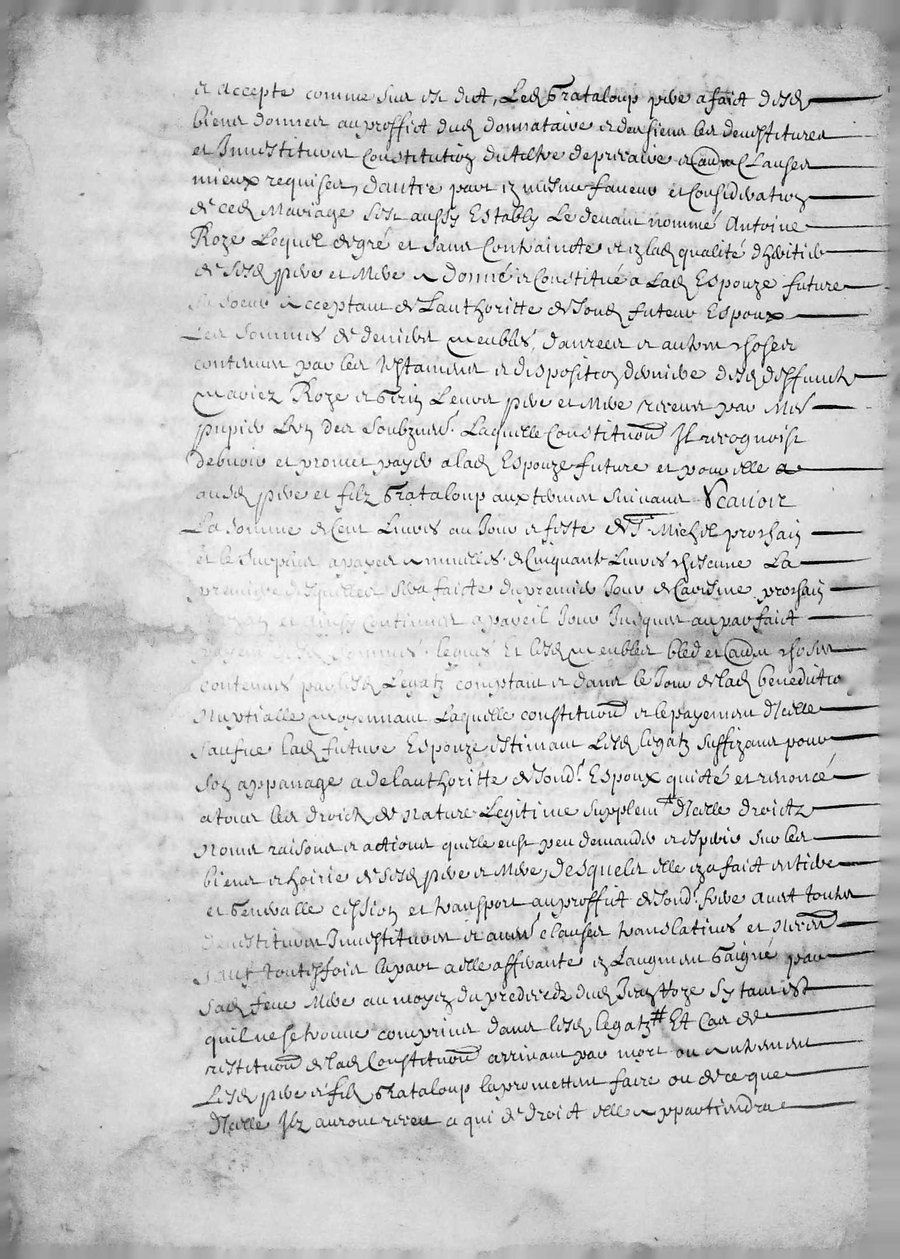 et accepté comme sus est dict, Led Grataloup pere a faict desd
biens donnes au proffict dud donnataire et des siens les devestitures
et Investitures Constitution du tiltre de precaire et au[tres] Clauses
mieux requises, d'autre part en mesme faveur et Consideration
de ced Mariage s'est aussy Estably Le devant nommé Antoine
Roze Lequel de gré et sans Contrainte et en lad qualité d'heritier
de sesd pere et Mere a donné et Constitué a Lad Espouze future
sa soeur Acceptant de L'authoritte de sond futeur Espoux
Les Sommes de deniers meubles, danrees et autres choses
contenues par les testaments et disposition derniere desd deffuncts
Roze et leurs pere et Mere receus par Me
des Soubzsignes. Laquelle Constitution Il recognoist
debvoir et promet payer a lad Espouze future et pour elle
ausd pere et filz Grataloup aux termes suivants Scavoir
La somme de Cent Livres au Jour et feste de St Michel prochain
et le surplus a payes annuelles de Cinquante Livres chascune La
premiere desquelles sera faicte du premier Jour de Caresme prochain
et ainsy Continuer a pareil Jour Jusques au parfaict
payement desd sommes leguées Et lesd meubles bled et au[tres] choses
contenues par lesd Legatz comptant et dans le Jour de lad benediction
Nuptialle moyennant Laquelle constitution et le payement d'Icelle
lad future Espouze estimant Lesd legatz suffizans pour
son appanage a de l'authoritte de sond. Espoux quité et renoncé
a tous les droicts de Nature Legitime supplement d'Icelle droictz
Noms raisons et actions qu'elle eust peu demander et esperer sur les
biens et hoirie de sesd pere et Mere, desquels elle en a faict entiere
et Generalle cession et transport au proffict de sond. frere avec toutes
devestitures Investitures et autres clauses translatives et
Sauf touteffois la part a elle afferante en L'augment Gaigné par
sad feue Mere au moyen du predeces dud Roze sy tant est
qu'il ne se trouve comprins dans lesd legatz# Et Cas de
restitution de lad Constitution arrivant par mort ou autrement
Lesd pere et filz Grataloup la promettent faire ou de ce que
d'Icelle Ilz auront receu a qui de droict elle appartiendra